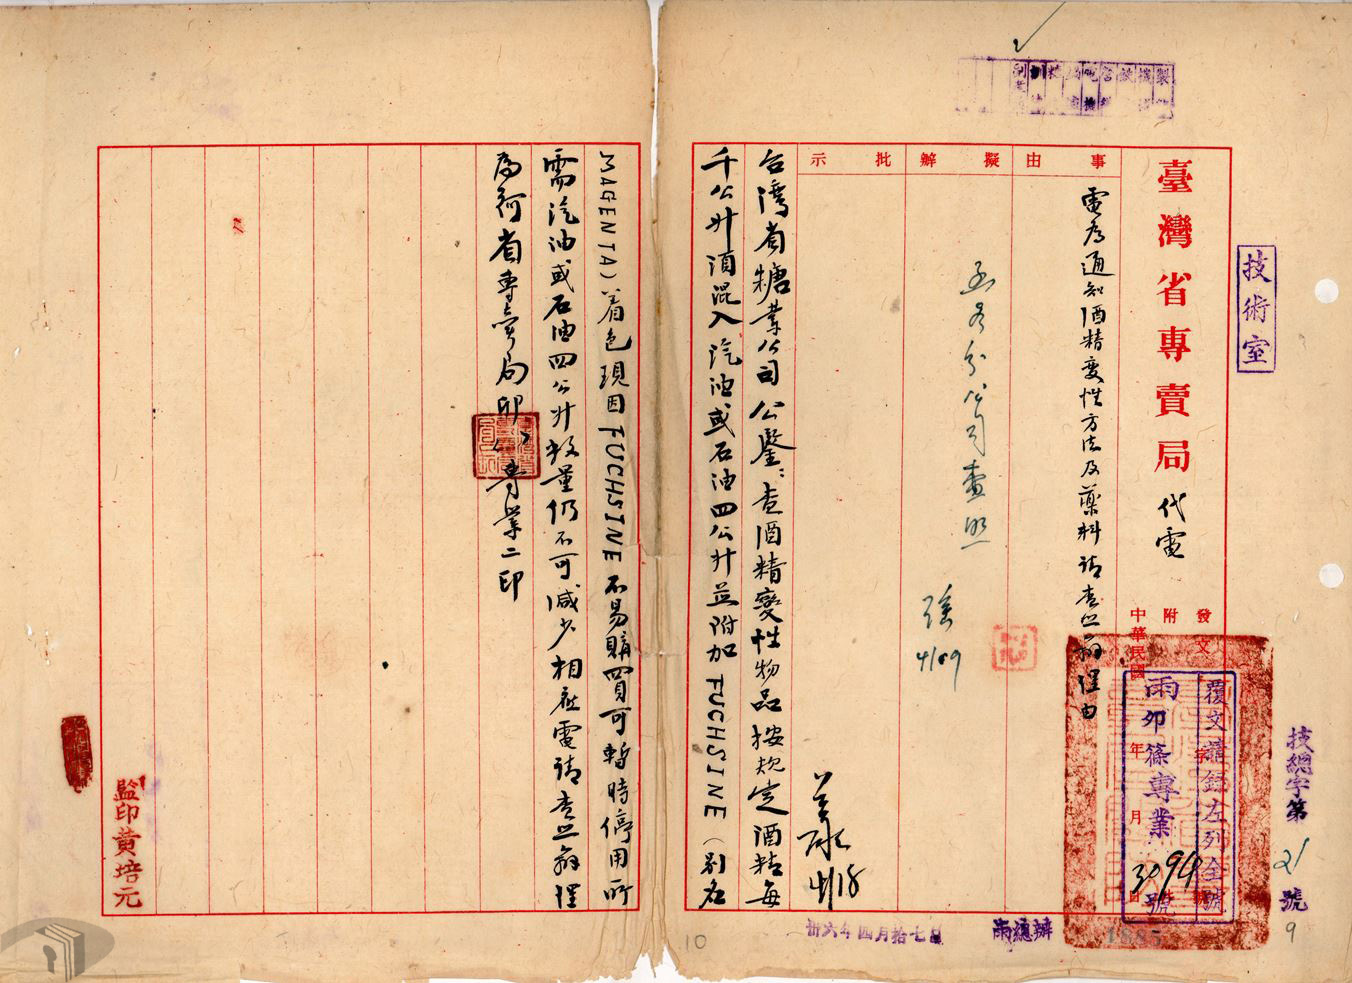 技術室
臺灣省專賣局代電
發文
附
中華民國
年
月
字
覆文請錄左列全號
雨卯篠專業
3094號
技總字第21號
9
事由
電為通知酒精變性方法及藥料請查照辦理由
擬辦
函各分公司查照
張
4/19
批示
4/18
台灣省糖業公司公鑒：查酒精變性物品按規定酒精每
千公升須混入汽油或石油四公升並附加FUCHSINE（別名
MAGENTA）着色現因FUCHSINE不易購買可暫時停用所
需汽油或石油四公升數量仍不可減少相應電請查照辦理
為荷省專賣局卯（）專業二印
監印黃培元
卅六年四月拾七日
雨總辦
1885
10